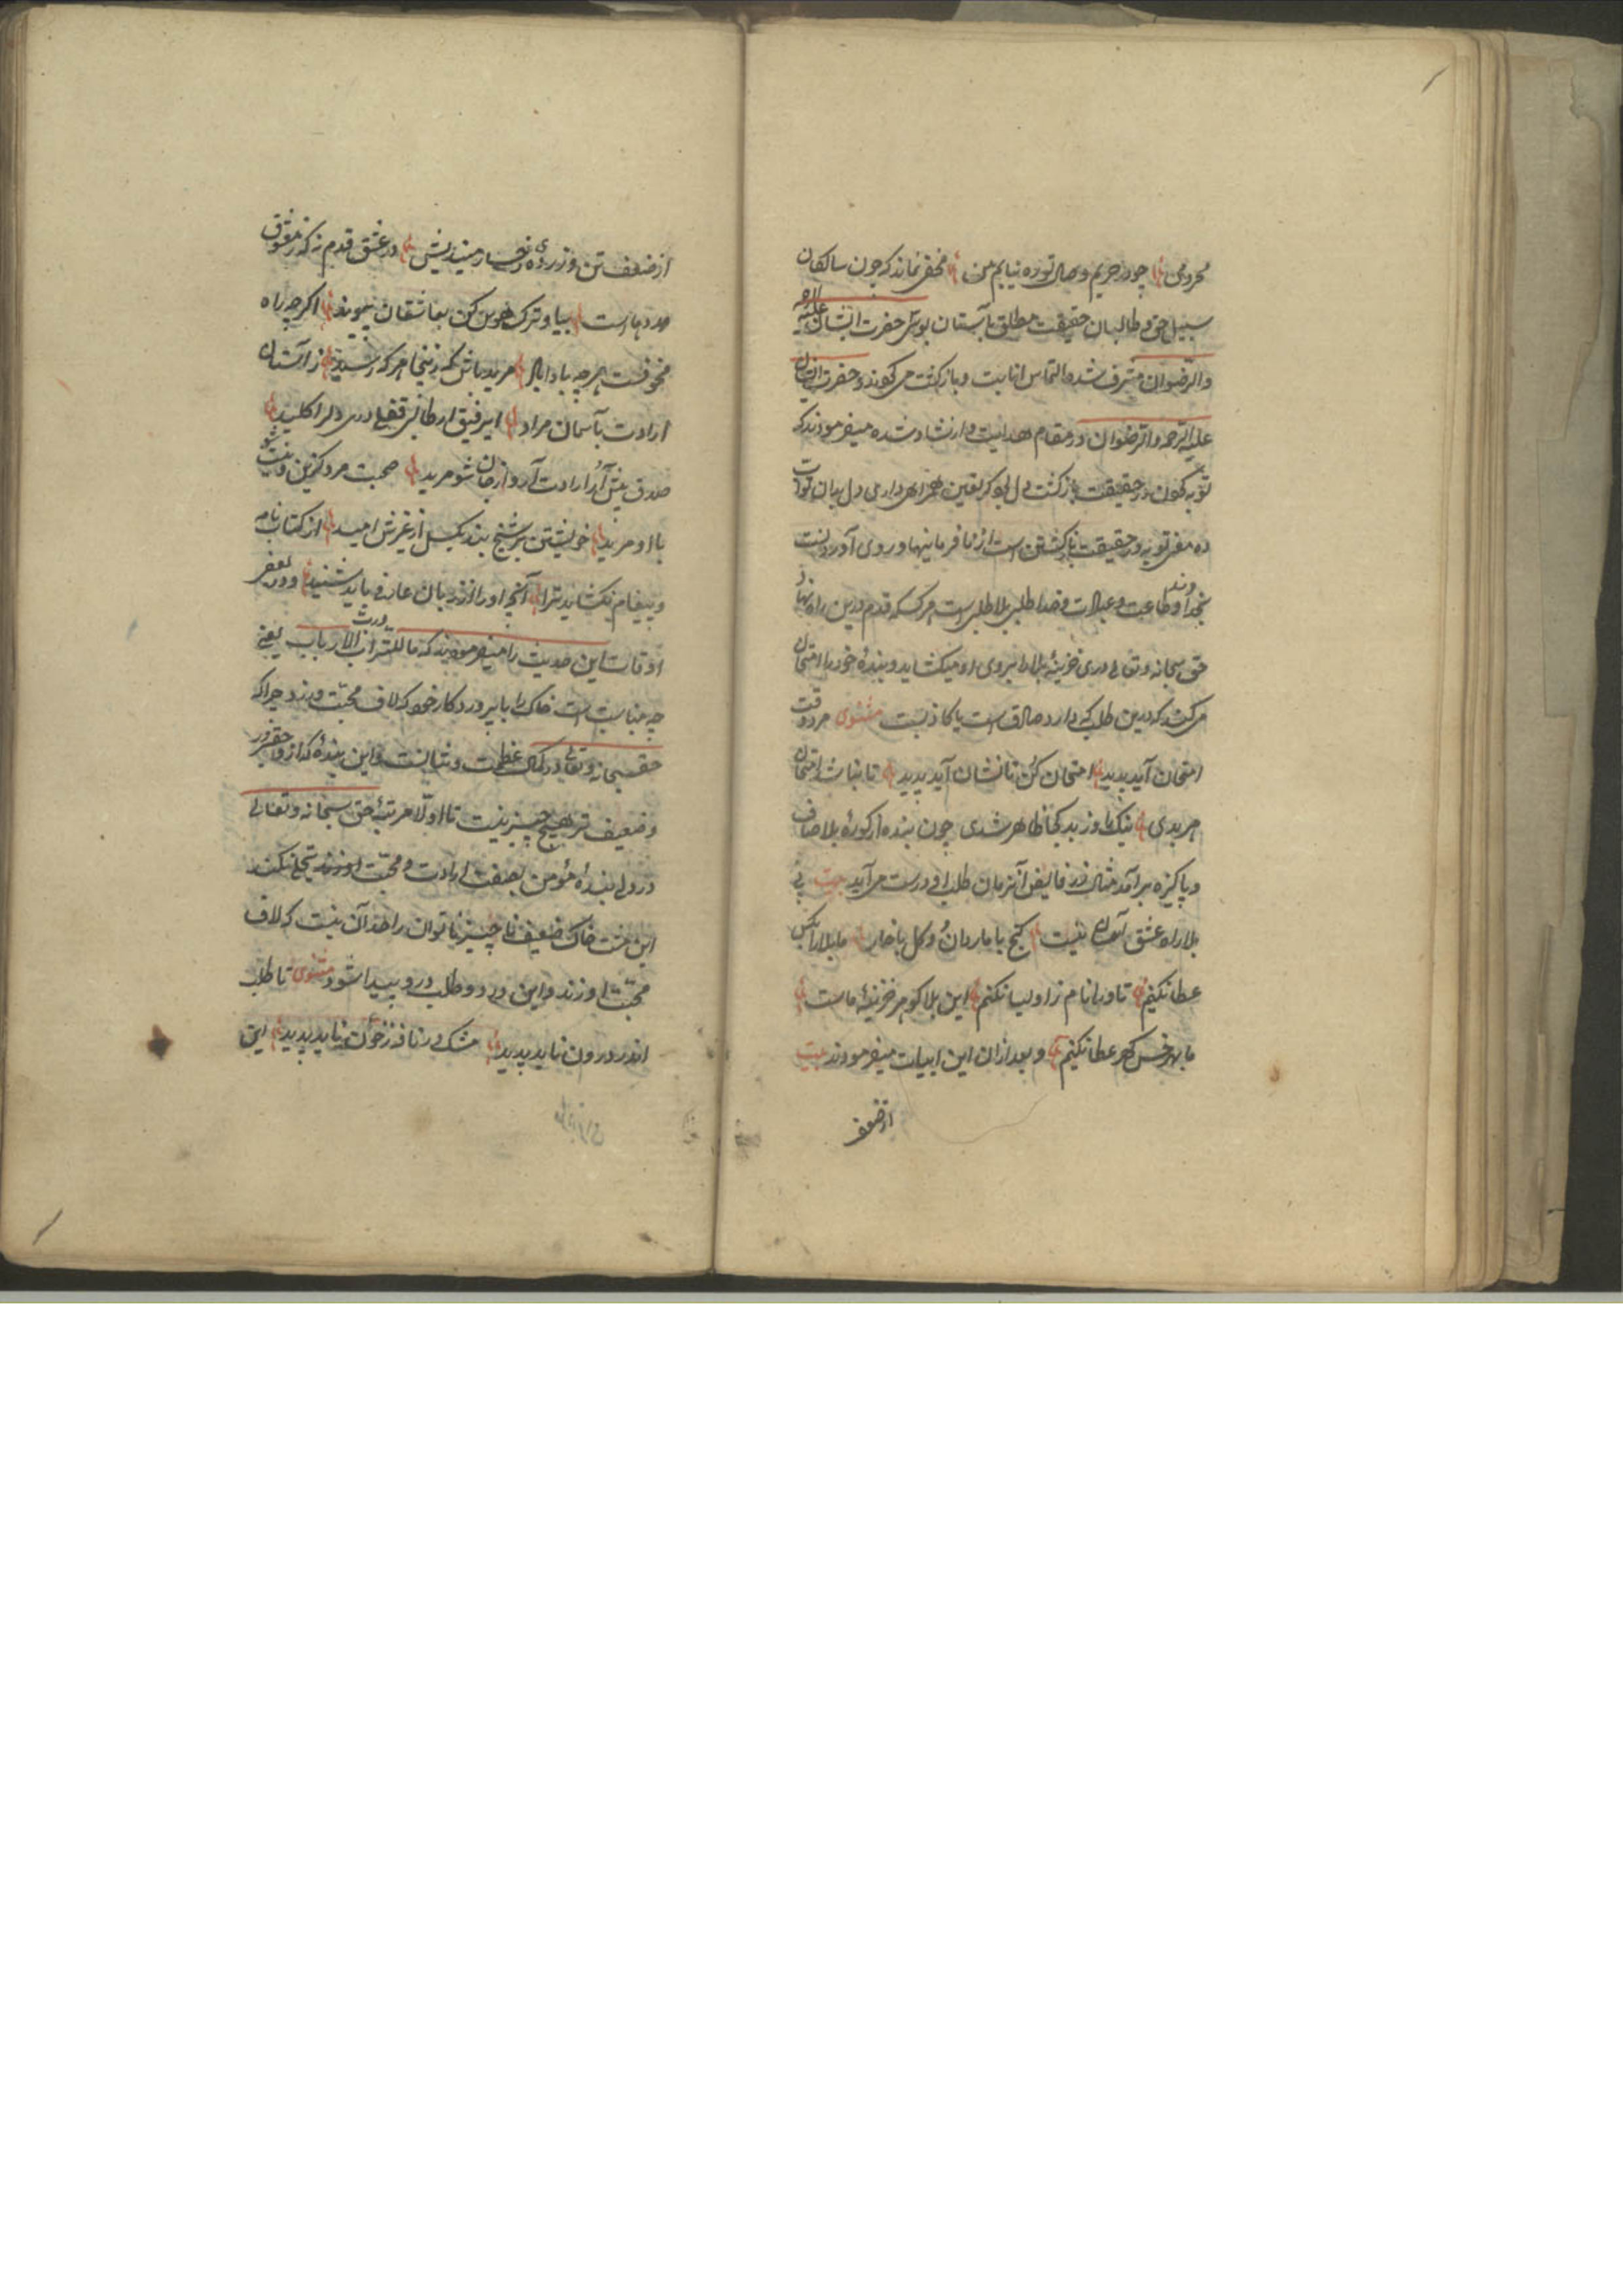 محرومی چو در حریم وصال تو ره نیابم من مخفی نماند که چون سالکان
سبیل حق و طالبان حقیقت مطلق بآستان بوس حضرت ایشان علیه الرحمه
والرضوان مشرف شده التماس انابت و بازگشت می کردند و حضرت ایشان
علیه الرحمه والرضوان در مقام هدایت و ارشاد شده میفرمودند که
توبه کردن در حقیقت بازگشت
توبه در حقیقت بازگشتن است از نافرمانیها و روی آوردنست
بخداوند و طاعت و عبادت و خدا طلبی بلا طلبی است هر کسی که قدم درین راه نهاد
حق سبحانه و تعالی دری خزینهٔ بلا را بروی او میکشاید و بندهٔ خود را امتحان
می کند که درین طلب که دارد صادق است یا کاذبست مثنوی مرد وقت
امتحان آید پدید امتحان کن تا نشان آید پدید تا نباشد امتحان
هر بدی نیک با و ز بد کجا ظاهر شدی چون بنده از کورهٔ بلا صاف
و پاکیزه برآمد مثال زر خالص آنزمان طلب او درست می آید بیت بی
بلا راه عشق آسان نیست گنج با مار دان و گل با خار ما بلا را بکس
عطا نکنیم تا ورا نام ز اولیا نکنیم این بلا گوهر خزینهٔ ماست
ما بهر خس گهر عطا نکنیم و بعد ازان این ابیات میفرمودند بیت
از ضعف
از ضعف تن و زردی رخسار میندیش در عشق قدم نه که ز معشوق
مددهاست بیا و ترک خودی کن بعاشقان پیوند اگر چه راه
مخوفست هر چه بادا باد مرید باش که زینجا هر که رسید ز آستان
ارادت بآسمان مراد ای رفیق از طالبی قفل در دل را کلید
صدق پیش آر ارادت آر و از جان شو مرید صحبت مرد گزین
با او مرید خویشتن بر شیخ بند بگسل از غیرش امید از کتاب نامه
و پیغام نکشاید ترا آنچه او را از زبان عارفی باید شنید و در بعضی
اوقات این حدیث را میفرمودند که ما للتراب ورب الارباب یعنی
چه مناسبت است خاک را با پروردگار خود که لاف محبت ورزد چرا که
حق سبحانه و تعالی در کمال عظمت و این بندهٔ که ازو حقیرتر
و ضعیف تر هیچ چیز نیست تا اولا مرتبهٔ حق سبحانه و تعالی
در دل بندهٔ مؤمن بصفت ارادت و محبت او زند تجلی نکند
این مشت خاک ضعیف ناچیز ناتوان را حد آن نیست که لاف
محبت او زند و این درد و طلب درو پیدا شود مثنوی تا طلب
اندر درون ناید پدید مشک در نافه ز خون ناید پدید این